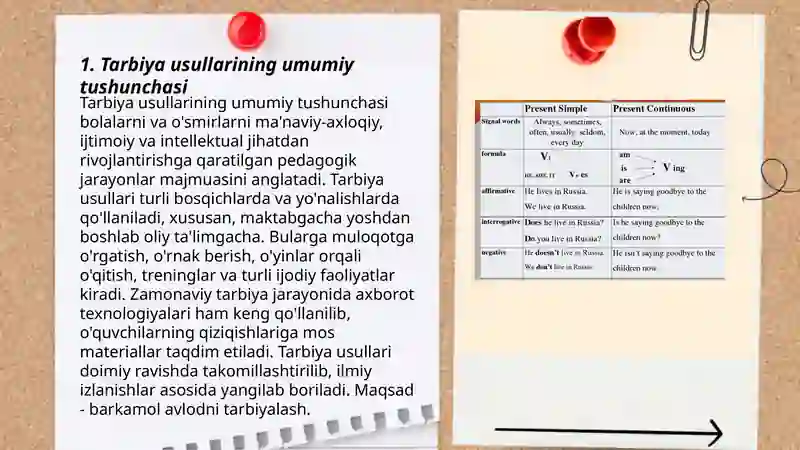 1. Tarbiya usullarining umumiy
tushunchasi
Tarbiya usullarining umumiy tushunchasi
bolalarni va o'smirlarni ma'naviy-axloqiy,
ijtimoiy va intellektual jihatdan
rivojlantirishga qaratilgan pedagogik
jarayonlar majmuasini anglatadi. Tarbiya
usullari turli bosqichlarda va yo'nalishlarda
qo'llaniladi, xususan, maktabgacha yoshdan
boshlab oliy ta'limgacha. Bularga muloqotga
o'rgatish, o'rnak berish, o'yinlar orqali
o'qitish, treninglar va turli ijodiy faoliyatlar
kiradi. Zamonaviy tarbiya jarayonida axborot
texnologiyalari ham keng qo'llanilib,
o'quvchilarning qiziqishlariga mos
materiallar taqdim etiladi. Tarbiya usullari
doimiy ravishda takomillashtirilib, ilmiy
izlanishlar asosida yangilab boriladi. Maqsad
- barkamol avlodni tarbiyalash.
Present Simple Present Continuous
Signal words Always, sometimes, often, usually, seldom, every day Now, at the moment, today
formula V1 he, she, it V+ es am is are V ing
affirmative He lives in Russia. He is saying goodbye to the
We live in Russia. children now.
interrogative Does he live in Russia? Is he saying goodbye to the
Do you live in Russia? children now?
negative He doesn't live in Russia. He isn't saying goodbye to the
We don't live in Russia. children now